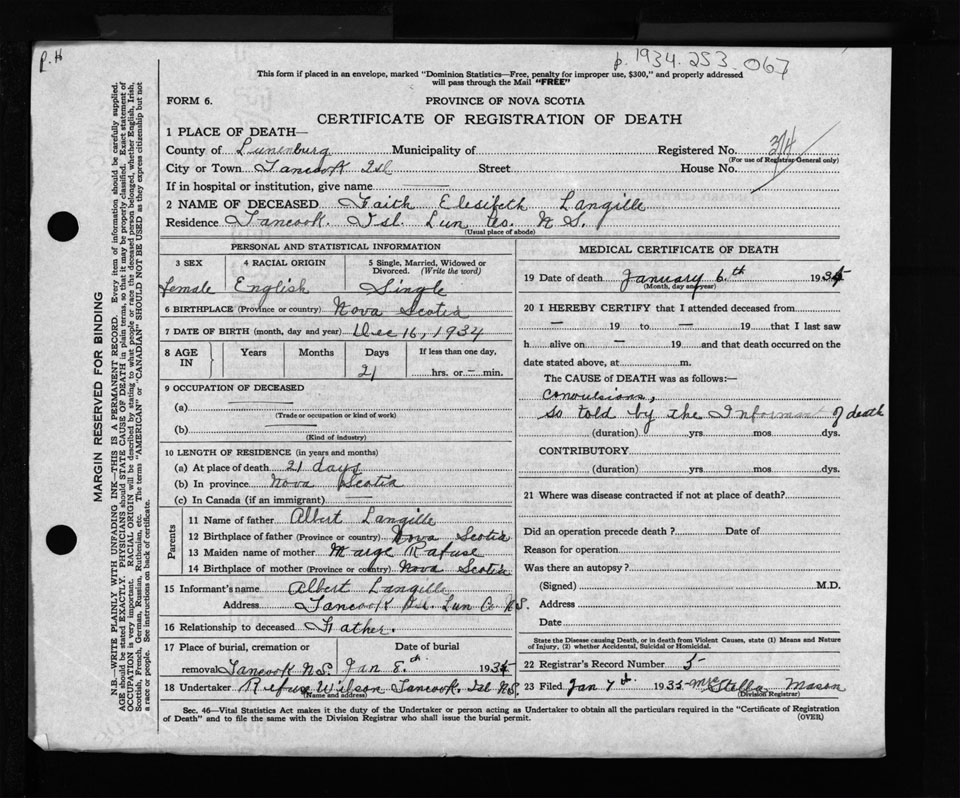 P. H
p. 1934.253.067
This form if placed in an envelope, marked "Dominion Statistics—Free, penalty for improper use, $300," and properly addressed
will pass through the Mail "FREE"
FORM 6.
PROVINCE OF NOVA SCOTIA
CERTIFICATE OF REGISTRATION OF DEATH
1 PLACE OF DEATH—
County of Lunenburg Municipality of Registered No. 314
(For use of Registrar General only)
City or Town Tancook Isl Street House No.
If in hospital or institution, give name
2 NAME OF DECEASED Faith Elesifeth Langille
Residence Tancook. Isl. Lun Co. N S.
(Usual place of abode)
PERSONAL AND STATISTICAL INFORMATION
3 SEX 4 RACIAL ORIGIN 5 Single, Married, Widowed or
Divorced. (Write the word)
female English Single
6 BIRTHPLACE (Province or country) Nova Scotia
7 DATE OF BIRTH (month, day and year) Dec 16, 1934
8 AGE IN Years Months Days If less than one day,
21 hrs. or — min.
9 OCCUPATION OF DECEASED
(a)
(Trade or occupation or kind of work)
(b)
(Kind of industry)
10 LENGTH OF RESIDENCE (in years and months)
(a) At place of death 21 days
(b) In province Nova Scotia
(c) In Canada (if an immigrant) —
Parents
11 Name of father Albert Langille
12 Birthplace of father (Province or country) Nova Scotia
13 Maiden name of mother Marge Rafuse
14 Birthplace of mother (Province or country) Nova Scotia
15 Informant's name Albert Langille
Address Tancook Isl. Lun Co. N.S.
16 Relationship to deceased Father.
17 Place of burial, cremation or Date of burial
removal Tancook N.S. Jan 8th 1935
18 Undertaker Wilson Tancook. Isl N.S.
(Name and address)
MEDICAL CERTIFICATE OF DEATH
19 Date of death January 6th 1935
(Month, day and year)
20 I HEREBY CERTIFY that I attended deceased from
— 19 to — 19 that I last saw
h alive on — 19 and that death occurred on the
date stated above, at m.
The CAUSE of DEATH was as follows:—
Convulsions,
so told by the Informant of death
(duration) yrs mos dys.
CONTRIBUTORY
(duration) yrs mos dys.
21 Where was disease contracted if not at place of death?
Did an operation precede death? Date of
Reason for operation
Was there an autopsy?
(Signed) M.D.
Address
Date
State the Disease causing Death, or in death from Violent Causes, state (1) Means and Nature
of Injury, (2) whether Accidental, Suicidal or Homicidal.
22 Registrar's Record Number 5
23 Filed Jan 7th 1935 Stella Mason
(Division Registrar)
Sec. 46—Vital Statistics Act makes it the duty of the Undertaker or person acting as Undertaker to obtain all the particulars required in the "Certificate of Registration
of Death" and to file the same with the Division Registrar who shall issue the burial permit.
(OVER)
MARGIN RESERVED FOR BINDING
N.B.—WRITE PLAINLY WITH UNFADING INK—THIS IS A PERMANENT RECORD. Every item of information should be carefully supplied.
AGE should be stated EXACTLY. PHYSICIANS should STATE CAUSE OF DEATH in plain terms, so that it may be properly classified. Exact statement of
OCCUPATION is very important. RACIAL ORIGIN will be described by stating to what people or race the deceased person belonged, whether English, Irish,
Scottish, French, German, Russian, Ruthenian, etc. The terms "AMERICAN" or "CANADIAN" SHOULD NOT BE USED as they express citizenship but not
a race or people. See instructions on back of certificate.